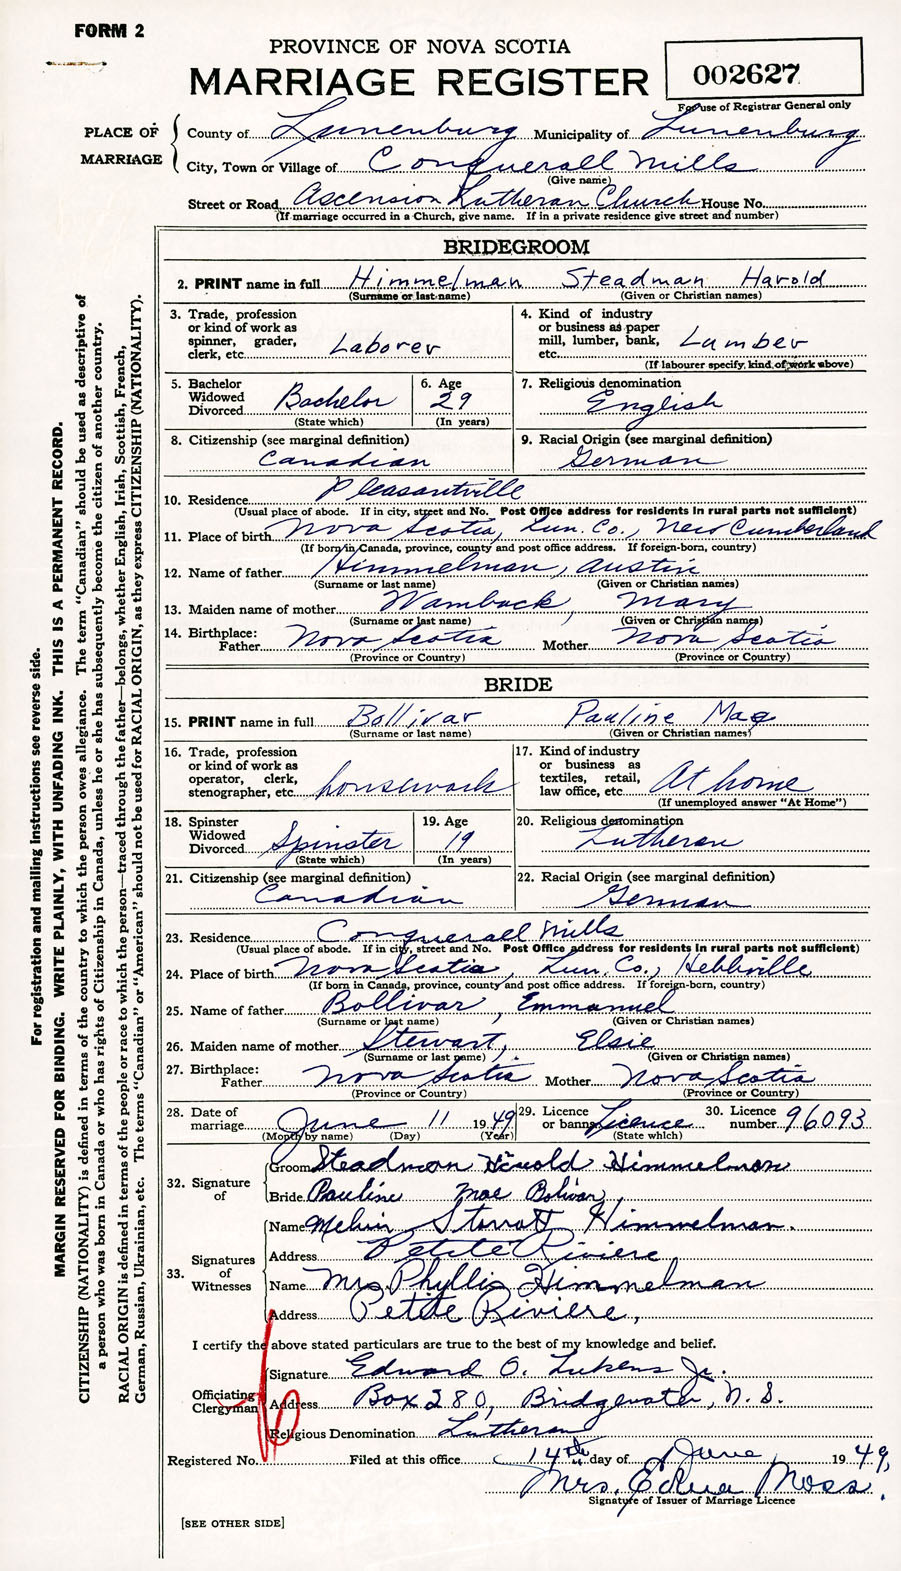 FORM 2
PROVINCE OF NOVA SCOTIA
MARRIAGE REGISTER
002627
For use of Registrar General only
PLACE OF MARRIAGE
County of Lunenburg Municipality of Lunenburg
City, Town or Village of Conquerall Mills
(Give name)
Street or Road Ascension Lutheran Church House No.
(If marriage occurred in a Church, give name. If in a private residence give street and number)
BRIDEGROOM
2. PRINT name in full Himmelman Steadman Harold
(Surname or last name) (Given or Christian names)
3. Trade, profession or kind of work as spinner, grader, clerk, etc. Laborer
4. Kind of industry or business as paper mill, lumber, bank, etc. Lumber
(If labourer specify kind of work above)
5. Bachelor Widowed Divorced Bachelor
(State which)
6. Age 29
(In years)
7. Religious denomination English
8. Citizenship (see marginal definition) Canadian
9. Racial Origin (see marginal definition) German
10. Residence Pleasantville
(Usual place of abode. If in city, street and No. Post Office address for residents in rural parts not sufficient)
11. Place of birth Nova Scotia, Lun. Co., New Cumberland
(If born in Canada, province, county and post office address. If foreign-born, country)
12. Name of father Himmelman, Austin
(Surname or last name) (Given or Christian names)
13. Maiden name of mother Wamback, Mary
(Surname or last name) (Given or Christian names)
14. Birthplace: Father Nova Scotia Mother Nova Scotia
(Province or Country) (Province or Country)
BRIDE
15. PRINT name in full Bollivar Pauline Mae
(Surname or last name) (Given or Christian names)
16. Trade, profession or kind of work as operator, clerk, stenographer, etc. housework
17. Kind of industry or business as textiles, retail, law office, etc. At home
(If unemployed answer "At Home")
18. Spinster Widowed Divorced Spinster
(State which)
19. Age 19
(In years)
20. Religious denomination Lutheran
21. Citizenship (see marginal definition) Canadian
22. Racial Origin (see marginal definition) German
23. Residence Conquerall Mills
(Usual place of abode. If in city, street and No. Post Office address for residents in rural parts not sufficient)
24. Place of birth Nova Scotia, Lun. Co., Hebbville
(If born in Canada, province, county and post office address. If foreign-born, country)
25. Name of father Bollivar, Emmanuel
(Surname or last name) (Given or Christian names)
26. Maiden name of mother Stewart, Elsie
(Surname or last name) (Given or Christian names)
27. Birthplace: Father Nova Scotia Mother Nova Scotia
(Province or Country) (Province or Country)
28. Date of marriage June 11 1949
(Month by name) (Day) (Year)
29. Licence or banns Licence
(State which)
30. Licence number 96093
32. Signature of
Groom Steadman Harold Himmelman
Bride Pauline Mae Bolivar
33. Signatures of Witnesses
Name Melvin Starratt Himmelman.
Address Petite Riviere
Name Mrs Phyllis Himmelman
Address Petite Riviere,
I certify the above stated particulars are true to the best of my knowledge and belief.
Officiating Clergyman
Signature Edward O. Lukens Jr.
Address Box 280, Bridgewater, N. S.
Religious Denomination Lutheran
Registered No. Filed at this office 14th day of June 1949,
Mrs. Edna Moss.
Signature of Issuer of Marriage Licence
[SEE OTHER SIDE]
For registration and mailing instructions see reverse side.
MARGIN RESERVED FOR BINDING. WRITE PLAINLY, WITH UNFADING INK. THIS IS A PERMANENT RECORD.
CITIZENSHIP (NATIONALITY) is defined in terms of the country to which the person owes allegiance. The term "Canadian" should be used as descriptive of
a person who was born in Canada or who has rights of Citizenship in Canada, unless he or she has subsequently become the citizen of another country.
RACIAL ORIGIN is defined in terms of the people or race to which the person—traced through the father—belongs, whether English, Irish, Scottish, French,
German, Russian, Ukrainian, etc. The terms "Canadian" or "American" should not be used for RACIAL ORIGIN, as they express CITIZENSHIP (NATIONALITY).